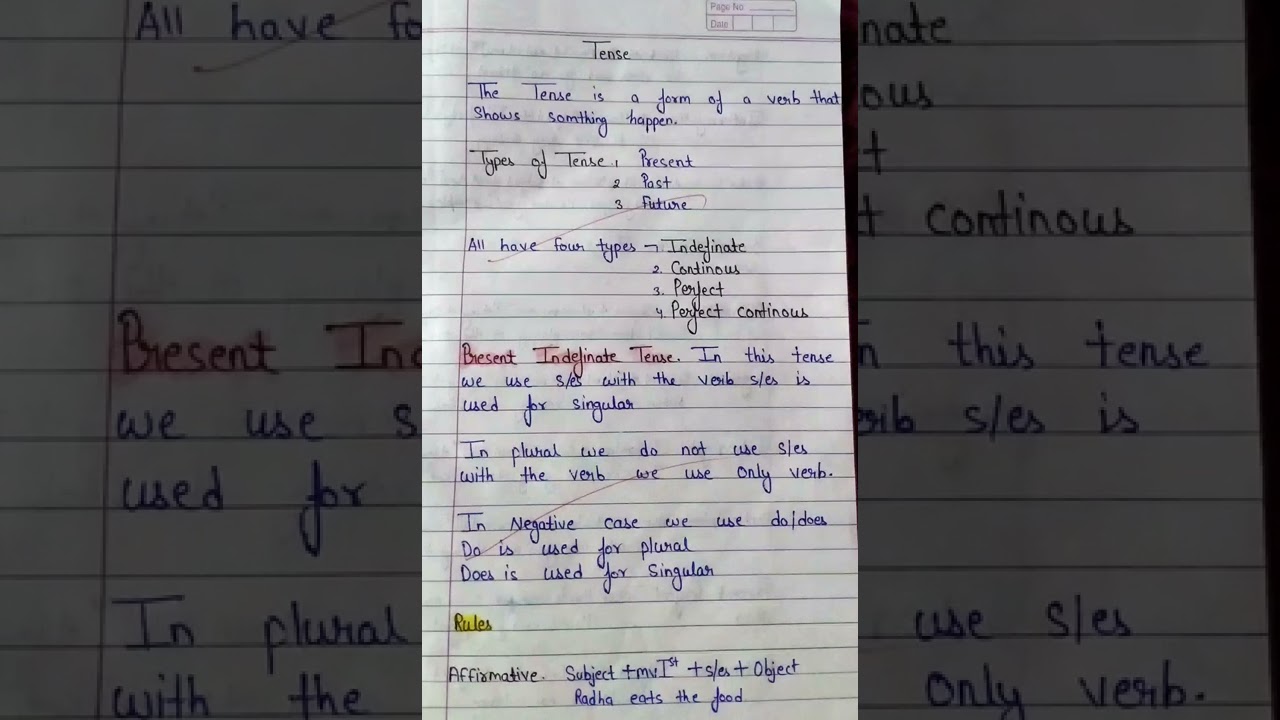 Page No
Date
Tense
The Tense is a form of a verb that
shows somthing happen.
Types of Tense 1 Present
2 Past
3 Future
All have four types ¬ Indefinate
2. Continous
3. Perfect
4. Perfect continous
Present Indefinate Tense. In this tense
we use s/es with the verb s/es is
used for singular
In plural we do not use s/es
with the verb we use only verb.
In Negative case we use do/does
Do is used for plural
Does is used for Singular
Rules
Affirmative. Subject + mvIst + s/es + Object
Radha eats the food